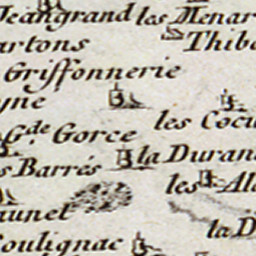 Jeangrand les Menar
artons Thibe
Griffonnerie
yne
les Cocu
G.de Gorce
s Barrés la Duran
les Al
aunet
la D
oulignac